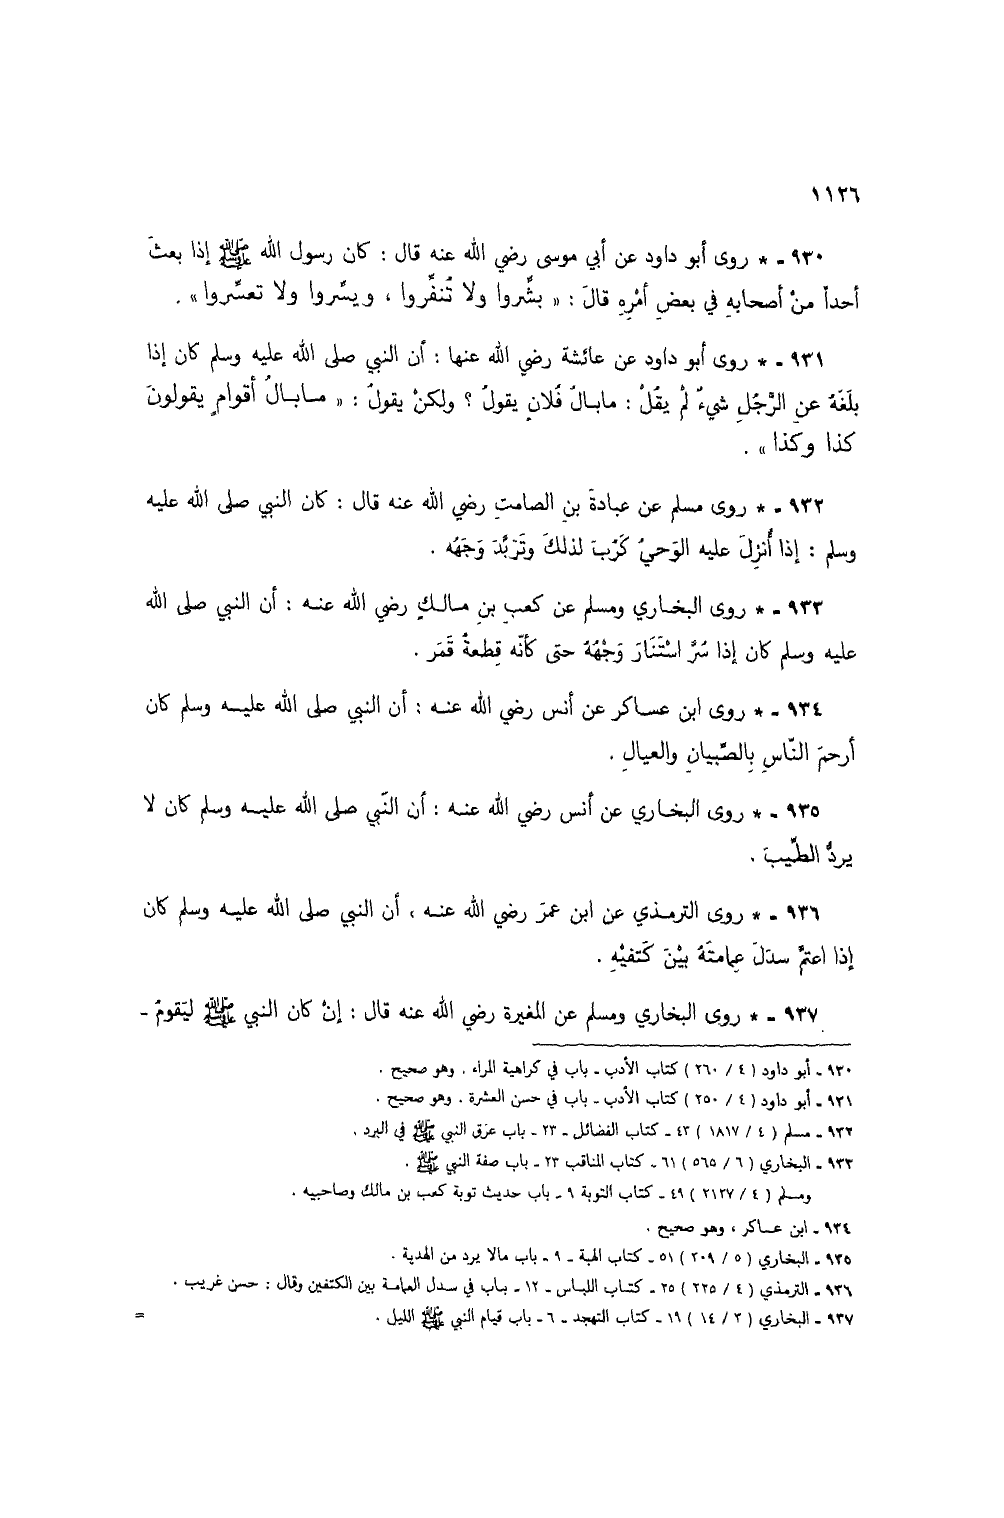 ١١٢٦
٩٣٠ ـ * روى أبو داود عن أبي موسى رضي الله عنه قال : كان رسول الله ﷺ إذا بعثَ
أحداً منْ أصحابهِ في بعضِ أمْرِهِ قالَ : « بشِّروا ولا تُنفِّروا ، ويسِّروا ولا تعسِّروا » .
٩٣١ ـ * روى أبو داود عن عائشة رضي الله عنها : أن النبي صلى الله عليه وسلم كان إذا
بلَغَهُ عنِ الرَّجُلِ شيءٌ لمْ يقُلْ : مابالُ فُلانٍ يقولُ ؟ ولكنْ يقولُ : « مابالُ أقوامٍ يقولونَ
كذا وكذا » .
٩٣٢ ـ * روى مسلم عن عبادةَ بنِ الصامتِ رضي الله عنه قال : كان النبي صلى الله عليه
وسلم : إذا أُنزِلَ عليه الوَحيُ كَرُبَ لذلكَ وتَرَبَّدَ وَجهُه .
٩٣٣ ـ * روى البخاري ومسلم عن كعبِ بنِ مالكٍ رضي الله عنه : أن النبي صلى الله
عليه وسلم كان إذا سُرَّ اسْتَنَارَ وَجْهُهُ حتى كأنّه قِطعةُ قَمَر .
٩٣٤ ـ * روى ابن عساكر عن أنس رضي الله عنه : أن النبي صلى الله عليه وسلم كان
أرحمَ النّاسِ بِالصِّبيانِ والعيالِ .
٩٣٥ ـ * روى البخاري عن أنس رضي الله عنه : أن النّبي صلى الله عليه وسلم كان لا
يردُّ الطِّيبَ .
٩٣٦ ـ * روى الترمذي عن ابن عمرَ رضي الله عنه ، أن النبي صلى الله عليه وسلم كان
إذا اعتمَّ سدَلَ عِمامتَهُ بيْنَ كَتفيْهِ .
٩٣٧ ـ * روى البخاري ومسلم عن المغيرة رضي الله عنه قال : إنْ كان النبي ﷺ ليَقومُ ـ
٩٣٠ ـ أبو داود ( ٤ / ٢٦٠ ) كتاب الأدب ـ باب في كراهية المراء . وهو صحيح .
٩٣١ ـ أبو داود ( ٤ / ٢٥٠ ) كتاب الأدب ـ باب في حسن العشرة . وهو صحيح .
٩٣٢ ـ مسلم ( ٤ / ١٨١٧ ) ٤٣ ـ كتاب الفضائل ـ ٢٣ ـ باب عرق النبي ﷺ في البرد .
٩٣٣ ـ البخاري ( ٦ / ٥٦٥ ) ٦١ ـ كتاب المناقب ٢٣ ـ باب صفة النبي ﷺ .
ومسلم ( ٤ / ٢١٢٧ ) ٤٩ ـ كتاب التوبة ٩ ـ باب حديث توبة كعب بن مالك وصاحبيه .
٩٣٤ ـ ابن عساكر ، وهو صحيح .
٩٣٥ ـ البخاري ( ٥ / ٢٠٩ ) ٥١ ـ كتاب الهبة ـ ٩ ـ باب مالا يرد من الهدية .
٩٣٦ ـ الترمذي ( ٤ / ٢٢٥ ) ٢٥ ـ كتاب اللباس ـ ١٢ ـ باب في سدل العمامة بين الكتفين وقال : حسن غريب .
٩٣٧ ـ البخاري ( ٣ / ١٤ ) ١٩ ـ كتاب التهجد ـ ٦ ـ باب قيام النبي ﷺ الليل .
=